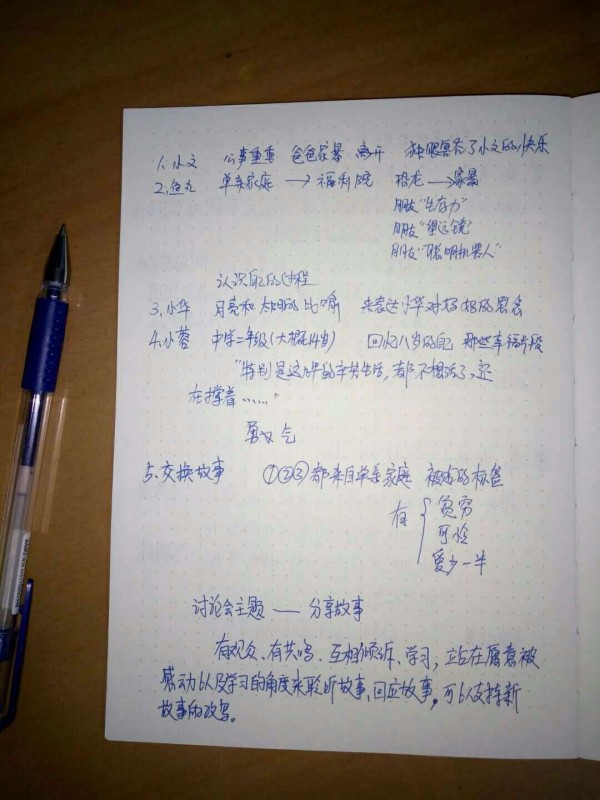 1. 小文 公事重重 爸爸家暴 离开 独眼兽夺了小文的快乐
2. 鱼丸 单亲家庭 → 福利院 恐龙 → 家暴
朋友“生存力”
朋友“望远镜”
朋友“聪明机器人”
认识自己的过程
3. 小华 月亮和太阳的比喻 来表达小华对妈妈的思念
4. 小蓉 中学二年级(大概14岁) 回忆八岁的自己 那些幸福片段
“特别是这几年的辛苦生活,都不想活了,还
在撑着……”
勇气
5. 交换故事 ①②③都来自单亲家庭 被贴的标签
有 { 贫穷
可怜
爱少一半
讨论会主题 — 分享故事
有观众、有共鸣、互相倾诉、学习,立站在愿意被
感动以及学习的角度来聆听故事,回应故事。可以支持新
故事的改写。